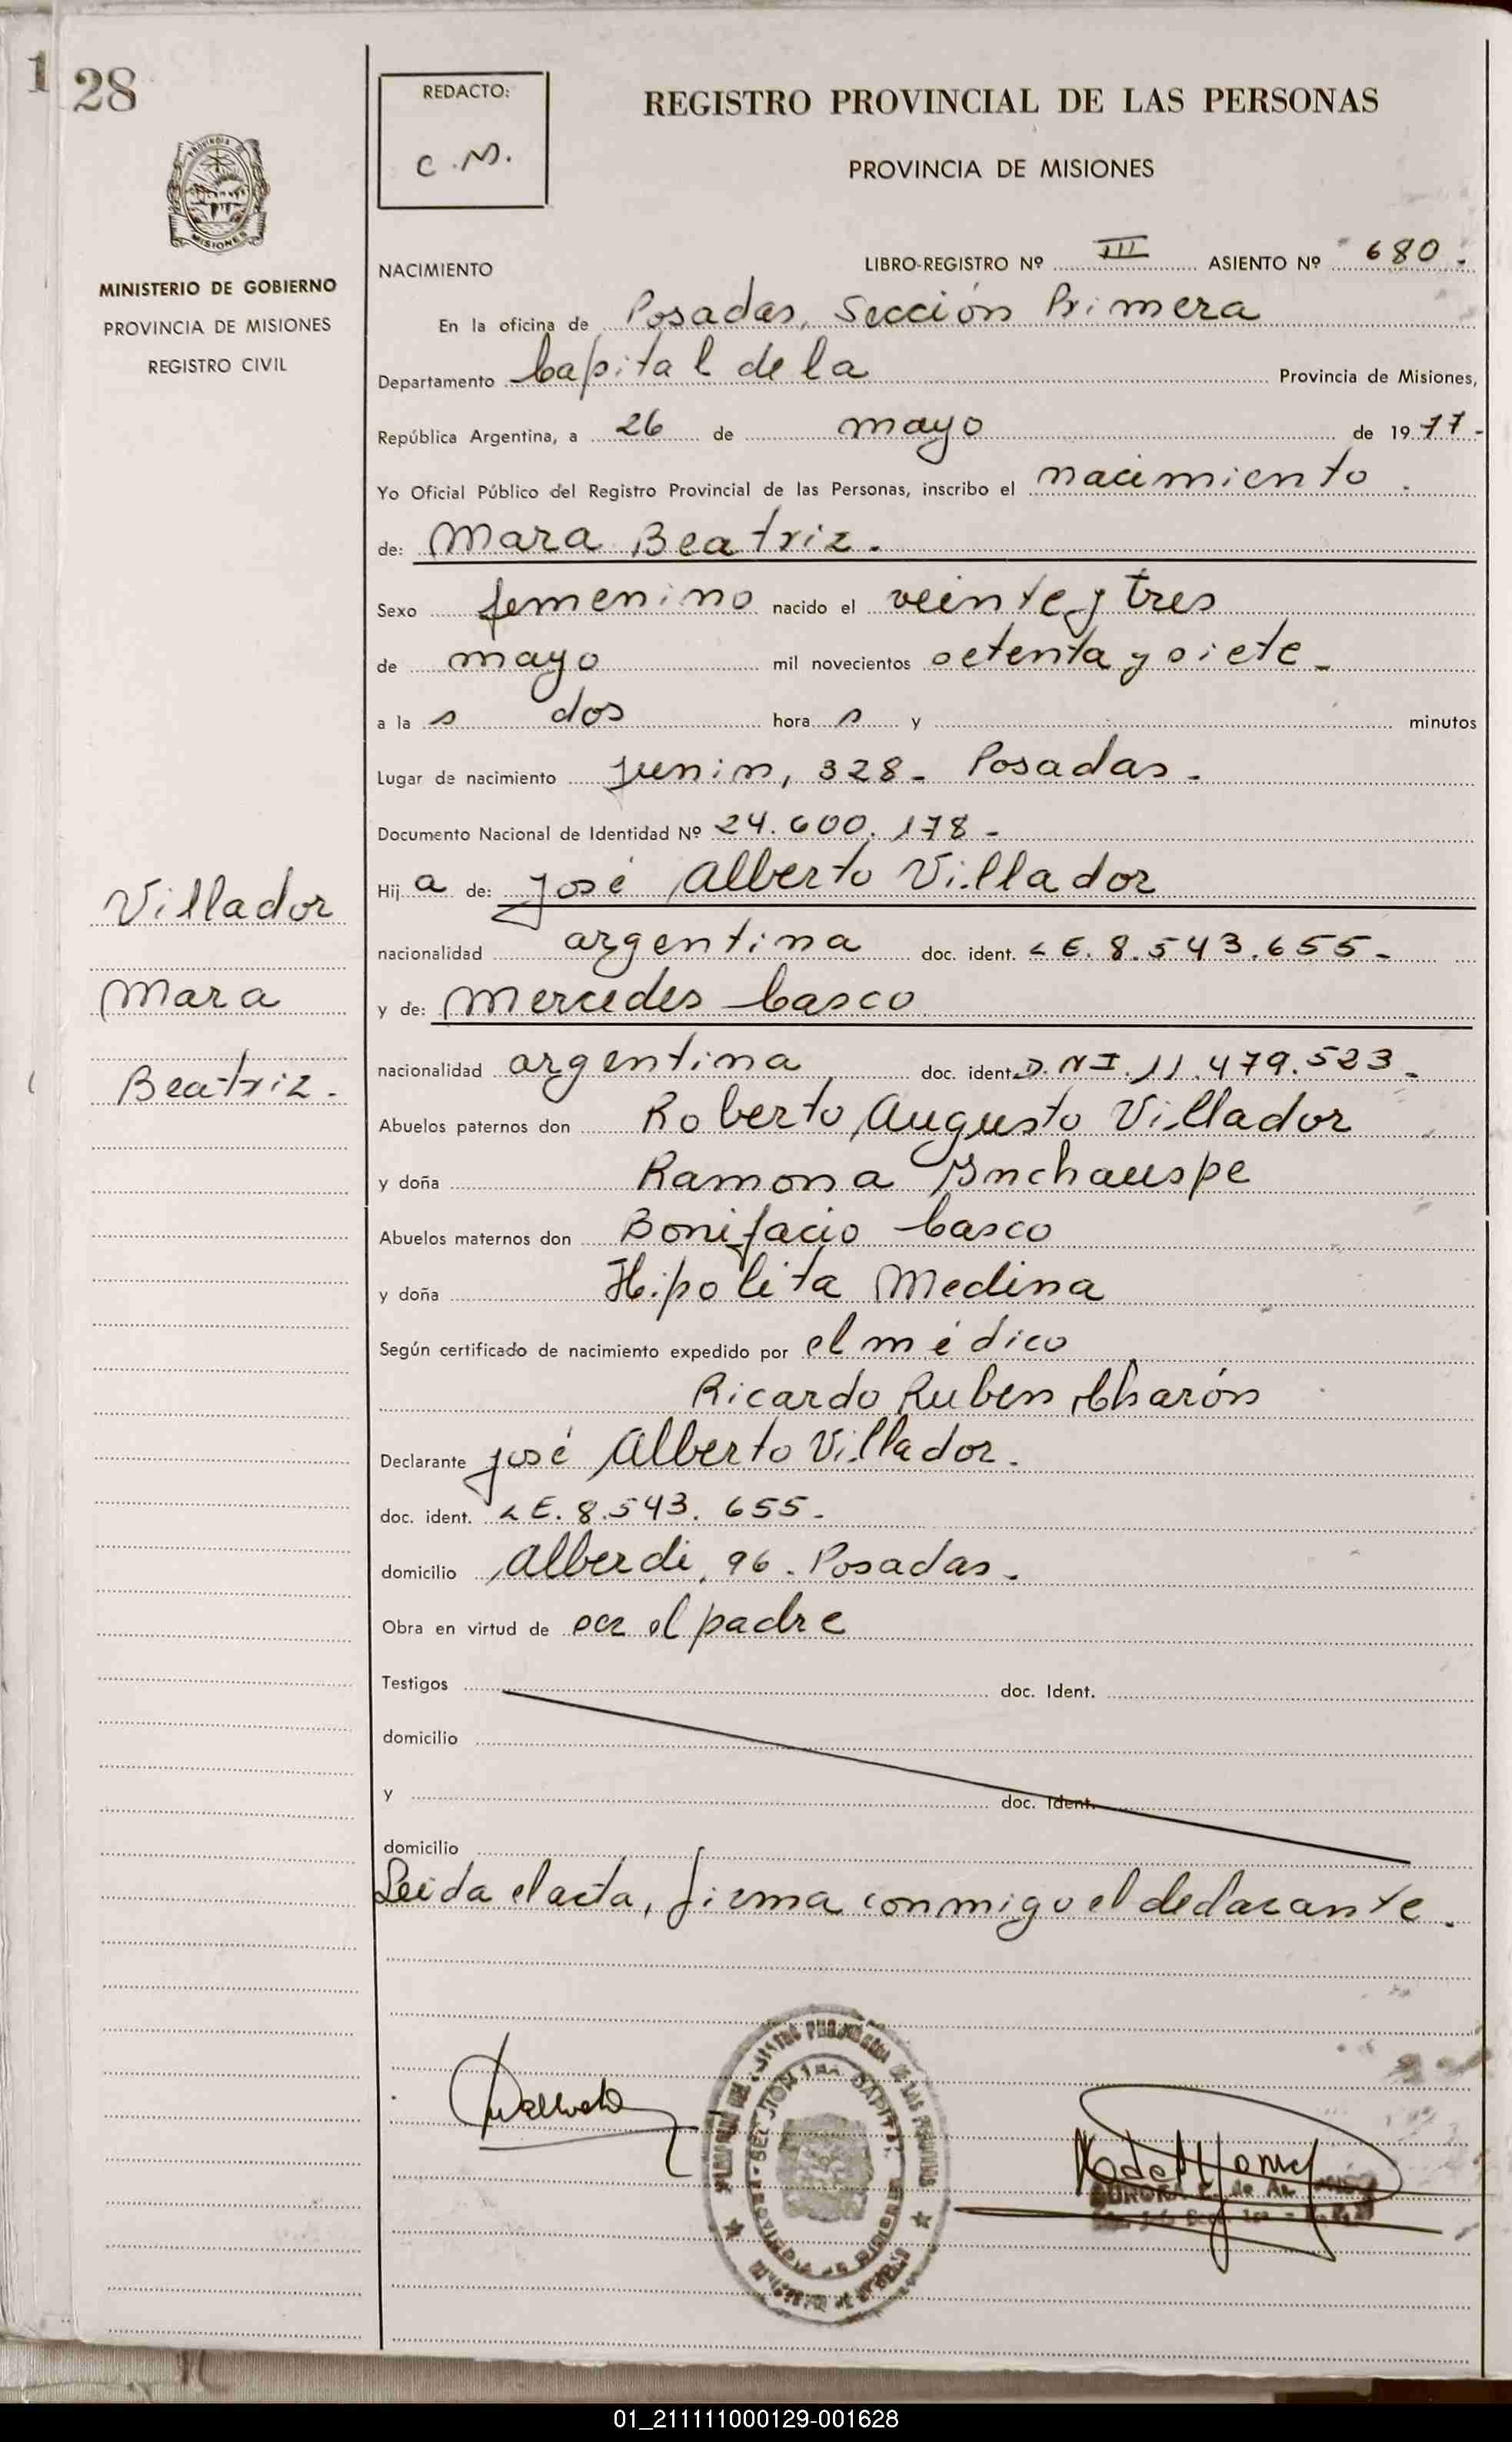 1 28
REDACTO:
C.M.
REGISTRO PROVINCIAL DE LAS PERSONAS
PROVINCIA DE MISIONES
PROVINCIA DE
MISIONES
MINISTERIO DE GOBIERNO
PROVINCIA DE MISIONES
REGISTRO CIVIL
NACIMIENTO
LIBRO-REGISTRO Nº III ASIENTO Nº 680.
En la oficina de Posadas, Sección Primera
Departamento Capital de la Provincia de Misiones,
República Argentina, a 26 de mayo de 1977-
Yo Oficial Público del Registro Provincial de las Personas, inscribo el nacimiento.
de: Mara Beatriz.
Sexo femenino nacido el veinte y tres
de mayo mil novecientos setenta y siete-
a la s dos hora s y minutos
Lugar de nacimiento Junin, 328- Posadas-
Documento Nacional de Identidad Nº 24.600.178-
Hij a de: José Alberto Villador
nacionalidad argentina doc. ident. L E. 8.543.655-
y de: Mercedes Casco
nacionalidad argentina doc. ident. D.N.I. 11.479.523-
Abuelos paternos don Roberto Augusto Villador
y doña Ramona Inchauspe
Abuelos maternos don Bonifacio Casco
y doña Hipolita Medina
Según certificado de nacimiento expedido por el médico
Ricardo Ruben Charón
Declarante José Alberto Villador.
doc. ident. L E. 8.543.655-
domicilio Alberdi, 96- Posadas-
Obra en virtud de ser el padre
Testigos doc. Ident.
domicilio
y doc. Ident.
domicilio
Leida el acta, firma conmigo el declarante.
Villador
Mara
Beatriz-
SECCION 1ra CAPITAL
PROVINCIA DE MISIONES
01_211111000129-001628